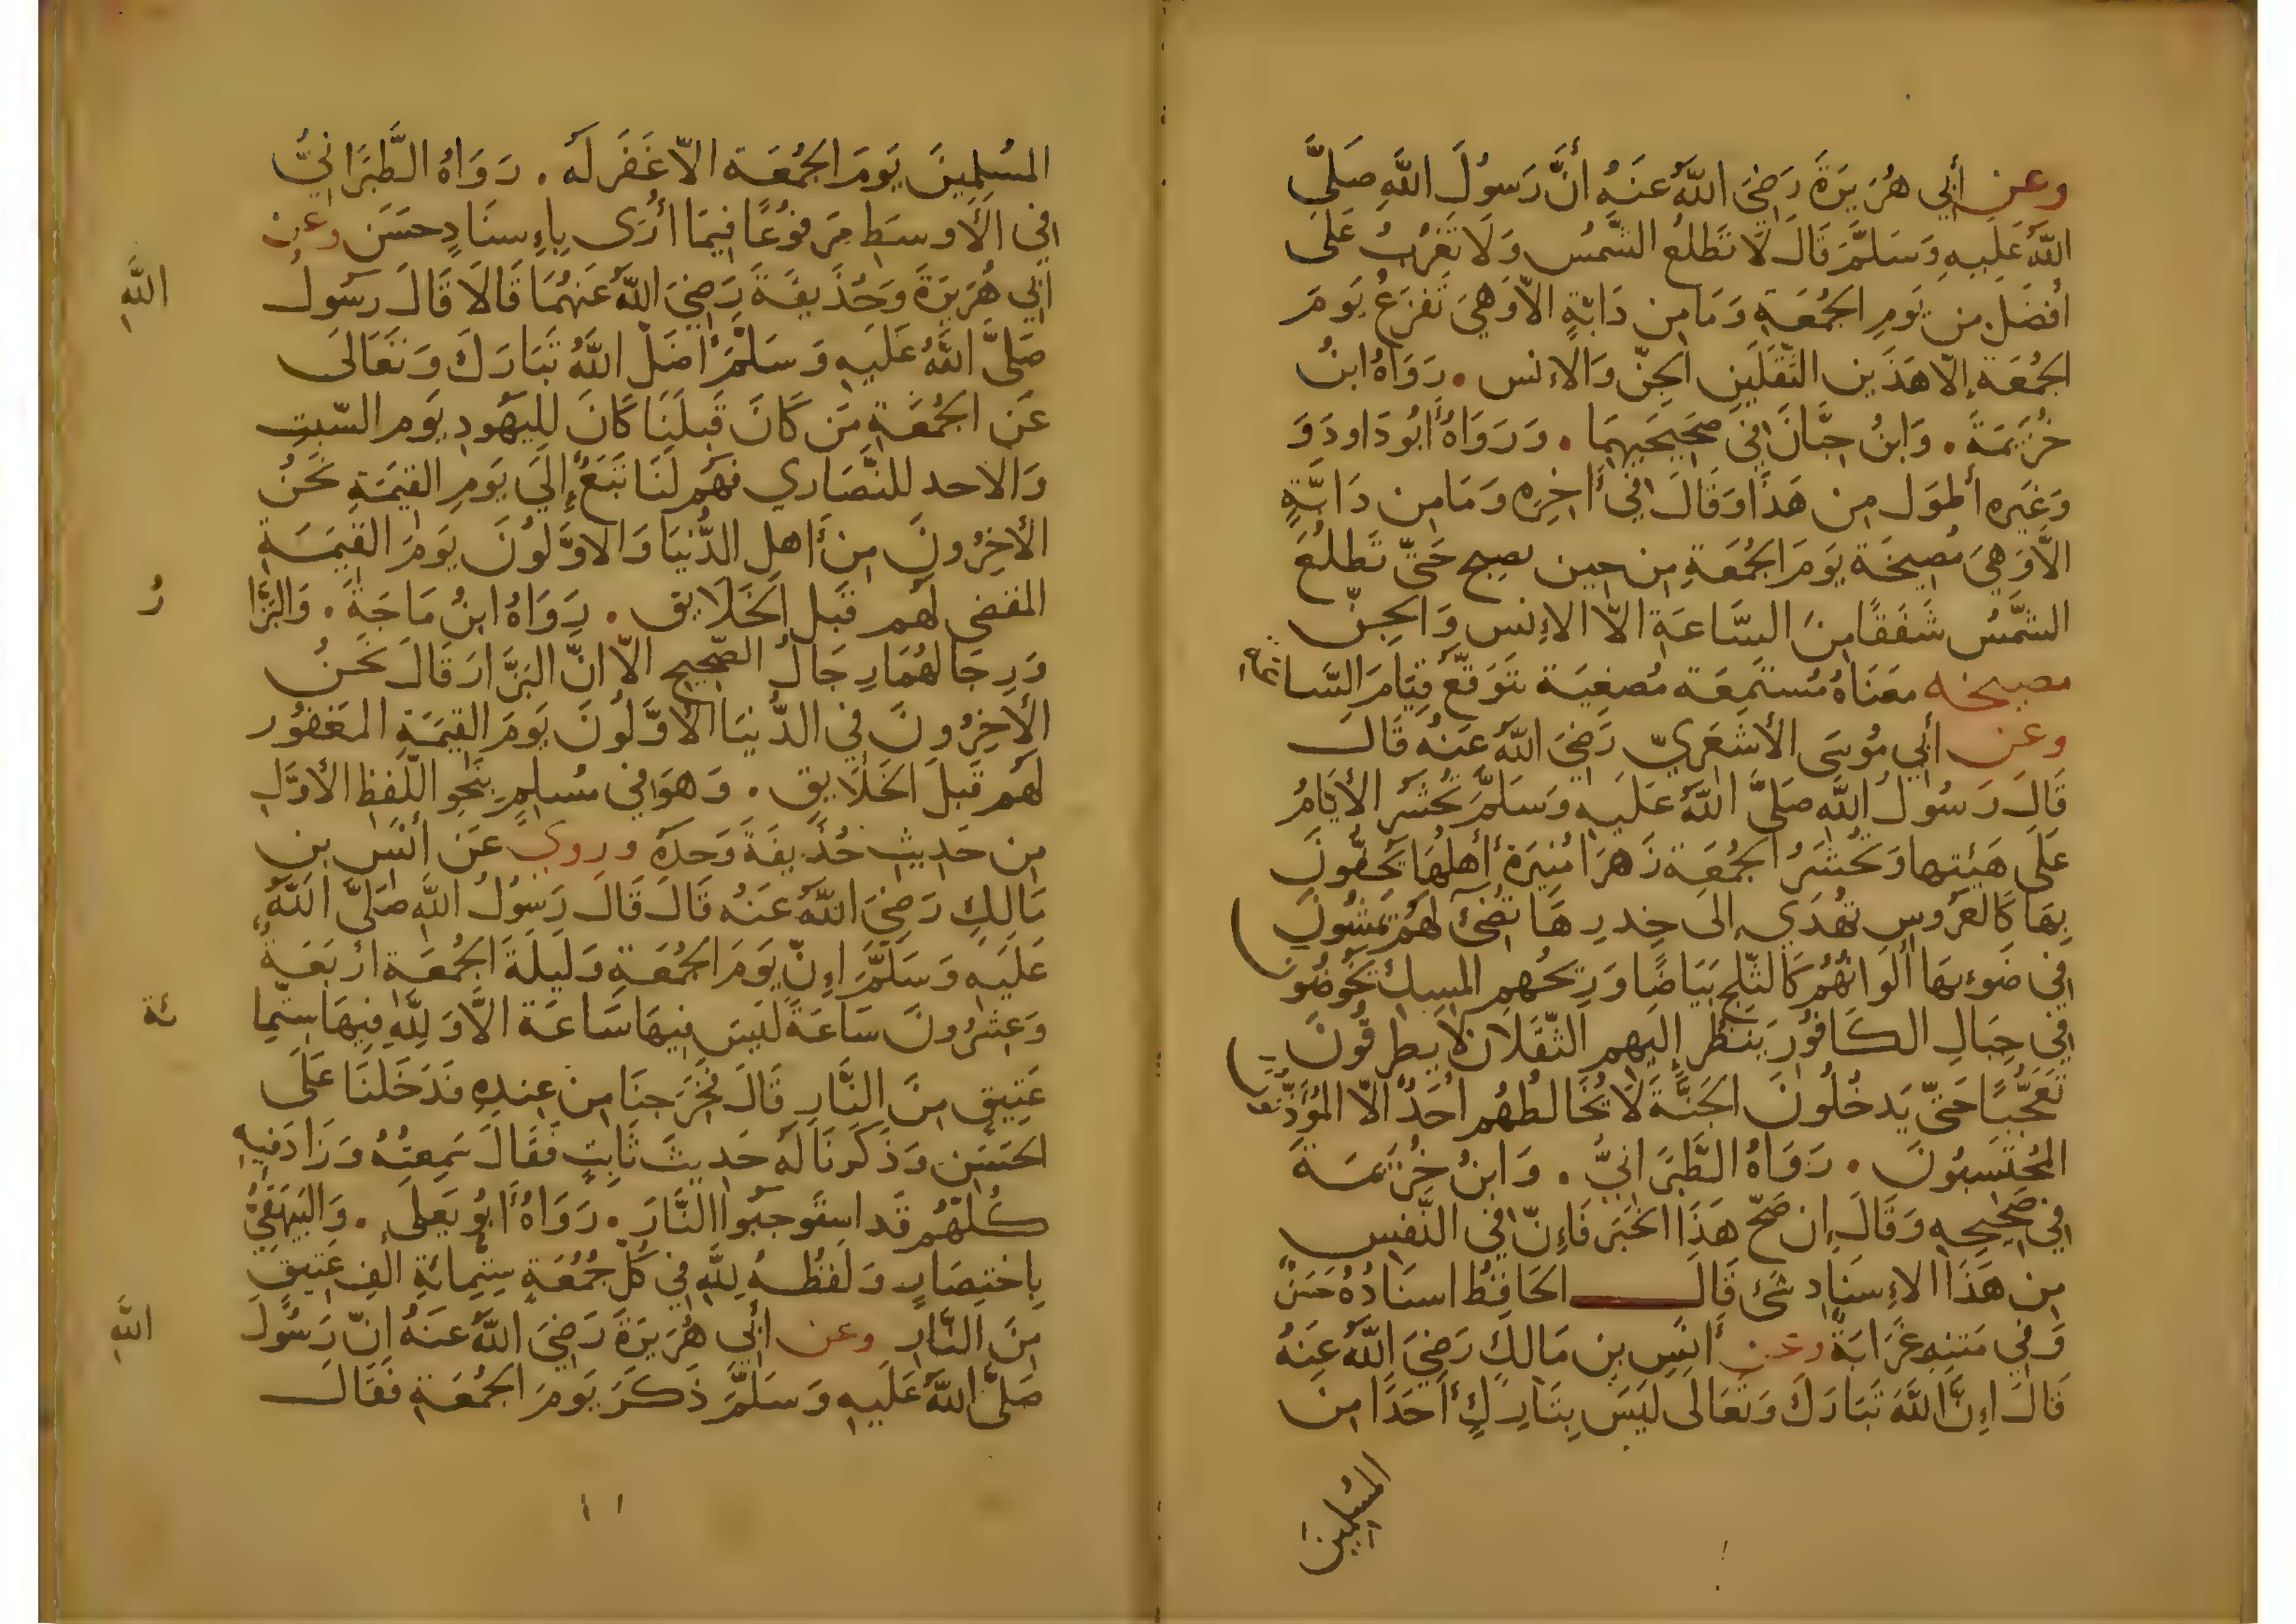 وعن أبي هُرَيرَةَ رَضِيَ اللَّهُ عنهُ أنَّ رَسولَ اللَّهِ صَلَّى
اللَّهُ عَلَيهِ وَسَلَّمَ قَالَ لَا تَطلعُ الشَّمسُ وَلَا تَغرُبُ عَلى
أفضَلَ من يَومِ الجُمُعَةِ وَمَا مِن دَابَّةٍ الَّا وَهِيَ تَفزَعُ يَومَ
الجُمُعَةِ إلّا هَذَينِ الثَّقَلَينِ الجِنّ وَالاِنس . رَوَاهُ ابنُ
خُزَيمَةَ . وَابنُ حِبَّانَ فِي صَحِيحَيهِمَا . وَرَوَاهُ أَبُو دَاودَ وَ
وَغَيره أطوَل مِن هَذَا وَقَالَ فِي أَاخِرِه وَمَا مِن دَابَّةٍ
الَّا وَهِيَ مُصِيخَة يَومَ الجُمُعَةِ مِن حِين تصبح حَتّى تَطلُعَ
الشَّمسُ شَفَقًا مِنَ السَّاعَةِ الاّ الاِنس وَالجِنّ
مصيخه معَنَاهُ مُستَمِعَة مُصغِيَة تَتَوَقَّع قِيَامَ السَّاعَة
وعن أبِي مُوسَى الأشعَرِيّ رَضِيَ اللَّهُ عَنهُ قَالَ
قَالَ رَسُولُ اللَّهِ صَلَّى اللَّهُ عَلَيهِ وَسَلَّمَ تُحشَر الأيَّامُ
عَلَى هَيئتها وَتُحشَرُ الجُمُعَة زَهرَا مُنِيرَة أهلُهَا يَحُفّونَ
بِهَا كَالعَرُوسِ تُهدَى إلى خِدرِهَا تُضِئُ لَهُم يَمشُونَ
فِي ضَوءِهَا ألوَانُهُم كَالثَّلجِ بَيَاضًا وَرِيحُهم المِسك يَخُوضُونَ
فِي جِبَالِ الكَافُورِ يَنظُر إلَيهِم الثَّقَلَان لَا يطرقُونَ
تَعَجُّبًا حَتّى يَدخُلُونَ الجَنَّةَ لَا يُخَالطُهُم أحَدٌ الّا المُؤَذِّنُونَ
المُحتَسِبُونَ . رَوَاهُ الطَّبَرَانِيُّ . وَابنُ خُزَيمَةَ
فِي صَحِيحِهِ وَقَالَ إن صَحّ هَذَا الخَبَر فَاِنّ فِي النَّفسِ
مِن هَذَا الاِسنَادِ شَئ قَالَ الحَافِظُ اسنَادُهُ حَسَنٌ
وَفِي مَتنِهِ غَرَابَةٌ وعن أَنَسِ بنِ مَالكٍ رَضِيَ اللَّهُ عَنهُ
قَالَ اِنَّ اللَّهَ تَبَارَكَ وَتَعَالَى لَيسَ بِتَارِكٍ أَحَدًا مِن
المُسلِمِينَ
المُسلِمِينَ يَومَ الجُمُعَة الاّ غَفَرَ لَه . رَوَاهُ الطَّبَرَانِيُّ
فِي الأَوسَطِ مَرفُوعًا فِيمَا أُرَى بِاِسنَادٍ حَسَن وعن
أبِي هُرَيرَةَ وَحُذَيفَةَ رَضِيَ اللَّهُ عَنهُمَا قَالَا قَالَ رسُولُ
اللَّهِ
صَلَّى اللَّهُ عَلَيهِ وَسَلَّمَ اضَلَّ اللَّهُ تَبَارَكَ وَتَعَالَى
عَن الجُمُعَةِ مَن كَانَ قَبلَنَا كَانَ لِليَهُودِ يَوم السّبتِ
وَالاحد للنَّصَارى فهُم لَنَا تَبَعٌ إلَى يَومِ القِيمَةِ نَحنُ
الأخِرُونَ مِن أهلِ الدُّنيَا وَالاوَّلُونَ يَومَ القِيمَةِ
المقضى لَهم قَبل الخَلَايق . رَوَاهُ ابنُ مَاجَةَ . وَالبَزَّا
رُ
وَرِجَالهُمَا رِجَالُ الصَّحِيحِ الاّ انّ البَزَّارَ قَالَ نَحنُ
الأخِرُونَ فِي الدُّنيَا الأَوَّلُونَ يَومَ القِيمَةِ المَغفُور
لَهُم قَبلَ الخَلَايِقِ . وَهوَ فِي مُسلِمٍ بِنَحوِ اللّفظِ الأوَّلِ
مِن حَدِيثِ حُذَيفَةَ وَحدَهُ وروي عَن أنَسِ بنِ
مَالِكٍ رَضِيَ اللَّهُ عَنهُ قَالَ قَالَ رَسُولُ اللَّهِ صَلَّى اللَّهُ
عَلَيهِ وَسَلَّمَ اِنّ يَومَ الجُمُعَةِ وَلَيلَةَ الجُمُعَةِ أربَعَةٌ
وَعِشرُونَ سَاعَةً لَيسَ فِيهَا سَاعَة الَّا وَلِلَّهِ فِيهَا سِتّمِا
ئة
عَتِيقٍ مِنَ النَّارِ قَالَ فَخَرَجنَا مِن عِندِهِ فَدَخَلنَا عَلَى
الحَسَنِ وَذَكَرنَا لَه حَدِيثَ ثَابِتٍ فَقَالَ سَمِعتُهُ وَزَادَ فِيهِ
كُلّهُم قَد استَوجَبُوا النَّارَ . رَوَاهُ أَبُو يَعلَى . وَالبَيهَقِيُّ
بِاختِصَارٍ وَلَفظُهُ لِلَّهِ فِي كُلّ جُمُعَةٍ سِتّمِائَةِ الفِ عَتِيقٍ
مِنَ النَّارِ وعن أبِي هُرَيرَةَ رَضِيَ اللَّهُ عَنهُ انّ رَسُولَ
اللَّهِ
صَلَّى اللَّهُ عَلَيهِ وَسَلَّمَ ذَكَرَ يَومَ الجُمُعَةِ فَقَالَ
١١